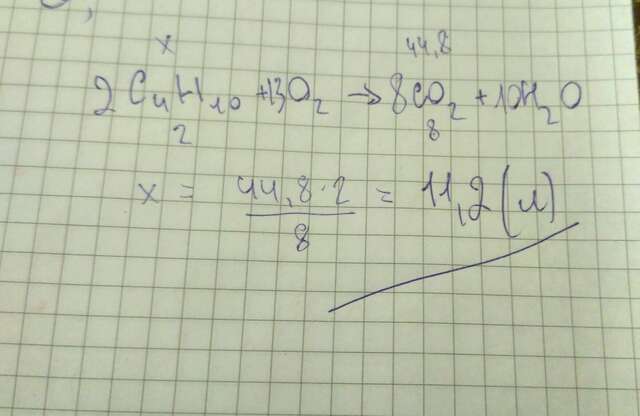 x 44,8
2C₄H₁₀ + 13O₂ → 8CO₂ + 10H₂O
2 8
x = 44,8·2 / 8 = 11,2 (л)